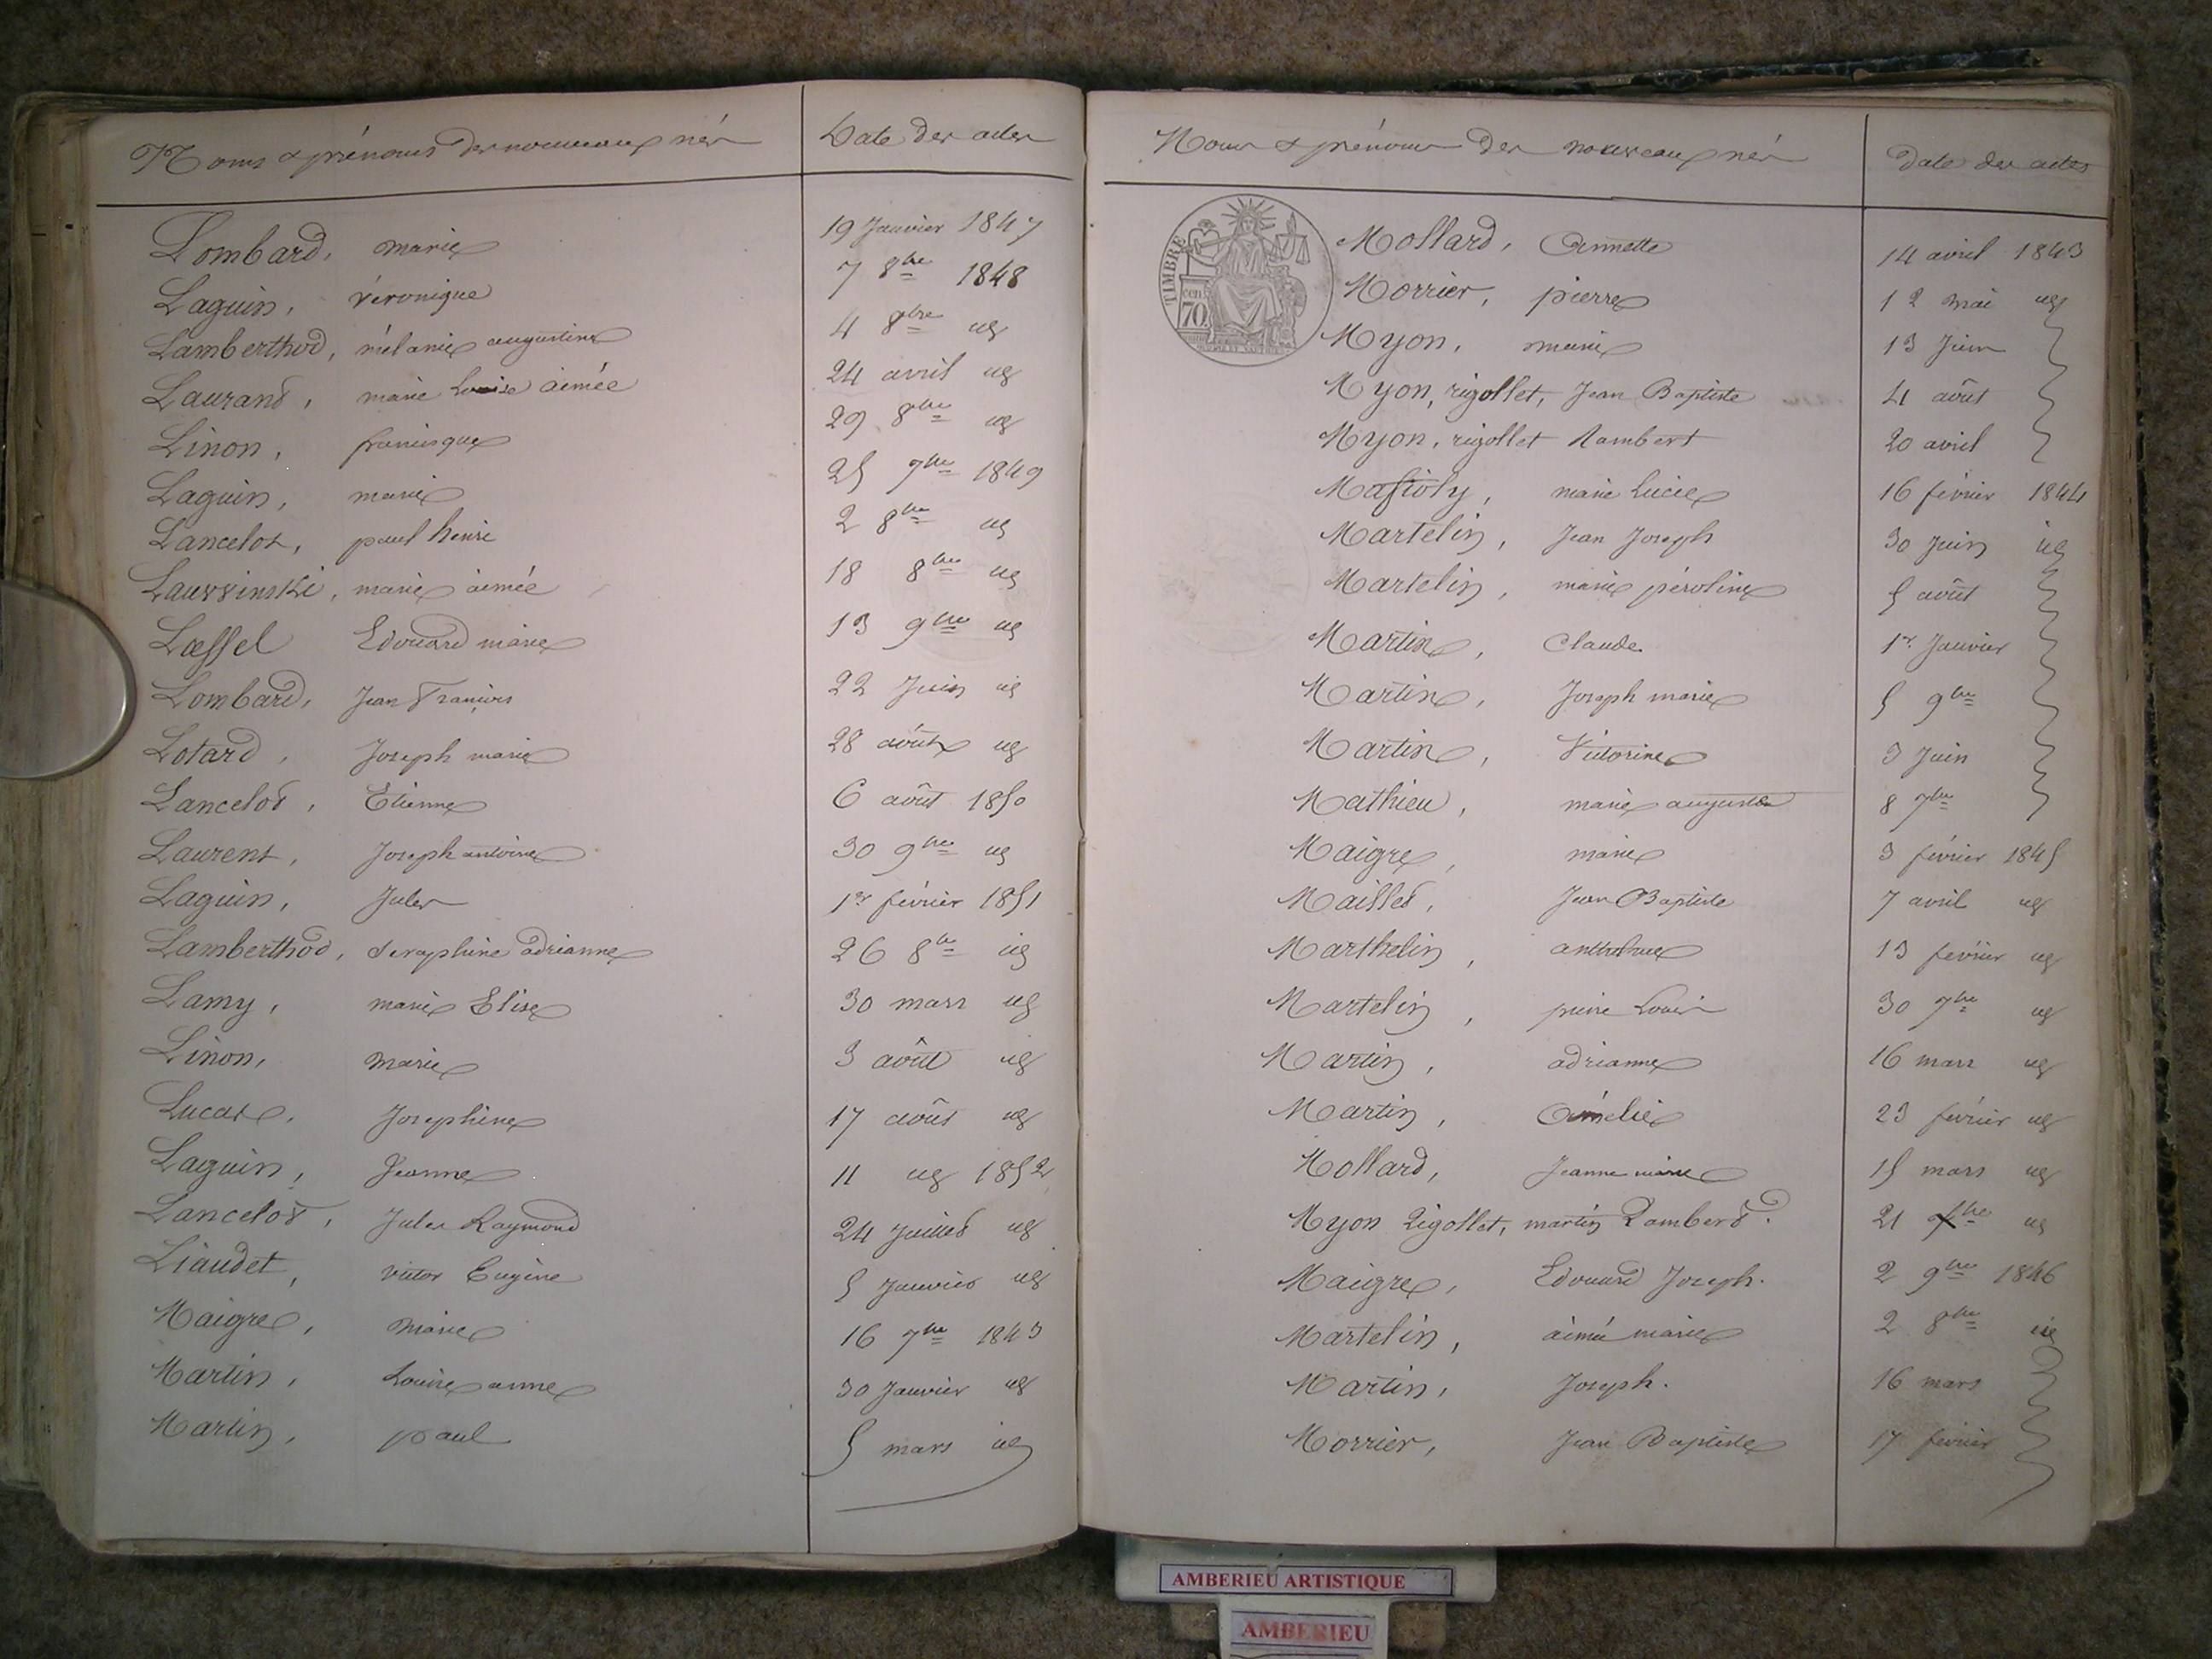 Noms & prénoms des nouveaux nés Date des actes
Lombard, marie 19 Janvier 1847
Laguin, véronique 7 8bre 1848
Lamberthod, mélanie augustine 4 8bre id
Laurand, marie Louise aimée 24 avril id
Linon, francisque 29 8bre id
Laguin, marie 25 7bre 1849
Lancelot, paul henri 2 8bre id
marie aimée 18 8bre id
Lœffel Edouard marie 13 9bre id
Lombard, Jean François 22 Juin id
Lotard, Joseph marie 28 août id
Lancelot, Etienne 6 août 1850
Laurent, Joseph antoine 30 9bre id
Laguin, Jules 1er février 1851
Lamberthod, Seraphine adrianne 26 8bre id
Lamy, marie Elise 30 mars id
Linon, marie 3 août id
Lucas, Josephine 17 août id
Laguin, Jeanne 11 id 1852
Lancelot, Jules Raymond 24 Juillet id
Liaudet, victor Eugène 5 Janvier id
Maigre, marie 16 7bre 1843
Martin, Louise anne 30 Janvier id
Martin, paul 5 mars id
Noms & prénoms des nouveaux nés Date des actes
TIMBRE
70
Mollard, Annette 14 avril 1843
Morrier, pierre 12 mai id
Myon, marie 13 Juin
Myon, rigollet, Jean Baptiste 4 août
Myon, rigollet Rambert 20 avril
marie Lucie 16 février 1844
Martelin, Jean Joseph 30 Juin id
Martelin, marie péroline 5 août
Martin, Claude 1er Janvier
Martin, Joseph marie 5 9bre
Martin, Victorine 3 Juin
Mathieu, marie 8 7bre
Maigre, marie 3 février 1845
Maillet, Jean Baptiste 7 avril id
Marthelin, anthelme 13 février id
Martelin, pierre Louis 30 7bre id
Martin, adrianne 16 mars id
Martin, Amélie 23 février id
Mollard, Jeanne marie 15 mars id
Myon Rigollet, martin Rambert. 21 id
Maigre, Edouard Joseph. 2 9bre 1846
Martelin, aimé marie 2 8bre id
Martin, Joseph. 16 mars
Morrier, Jean Baptiste 17 février
AMBERIEU ARTISTIQUE
AMBERIEU